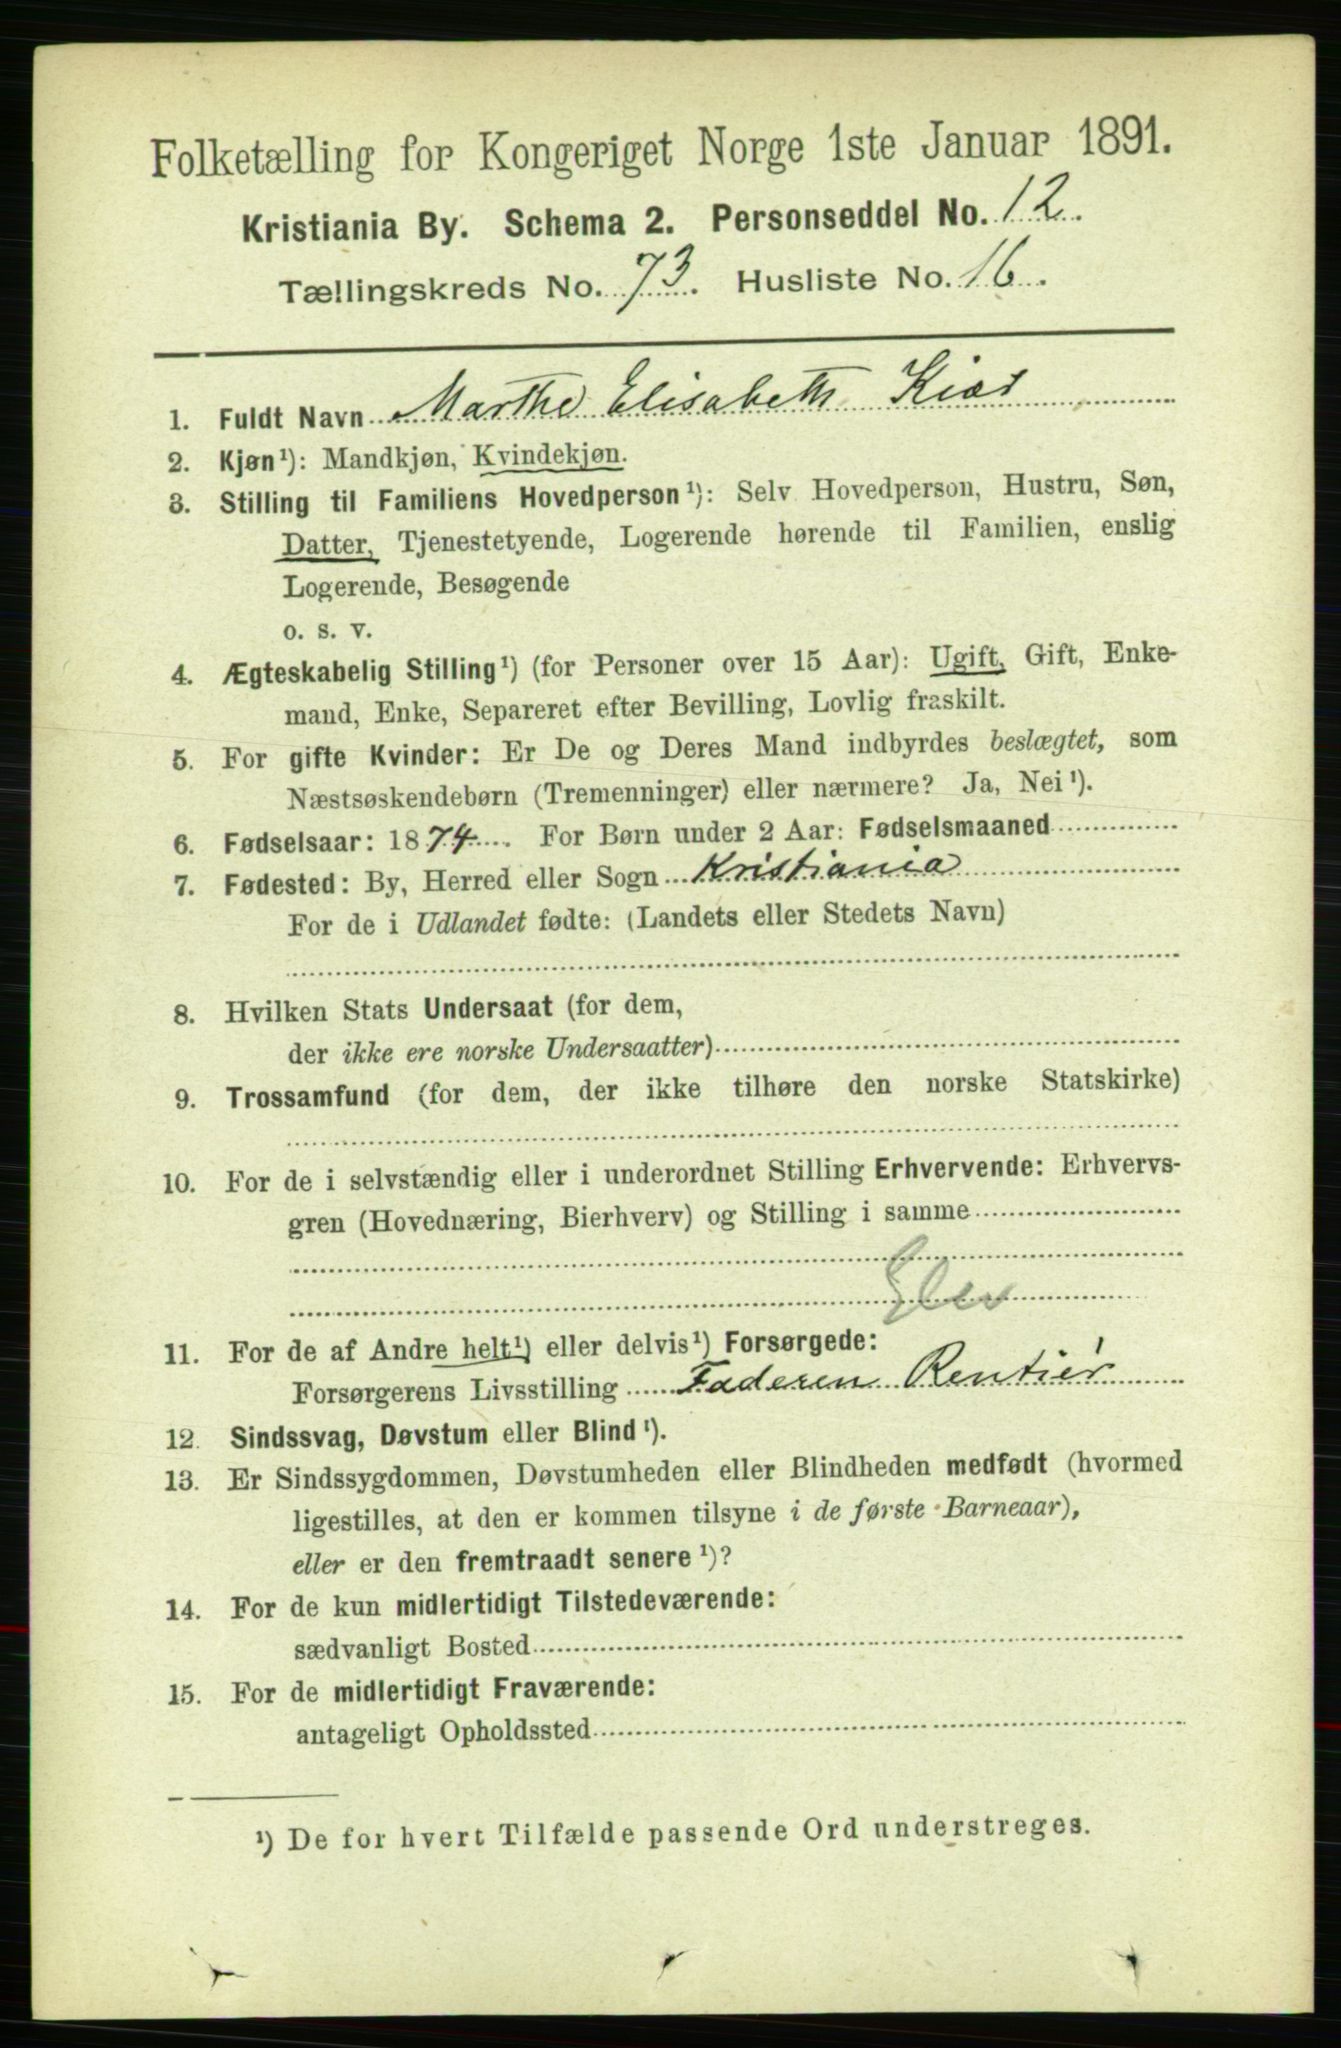 Folketælling for Kongeriget Norge 1ste Januar 1891.
Kristiania By. Schema 2. Personseddel No. 12.
Tællingskreds No. 73. Husliste No. 16.
1. Fuldt Navn Marthe Elisabeth Kiær
2. Kjøn¹): Mandkjøn, Kvindekjøn.
3. Stilling til Familiens Hovedperson¹): Selv Hovedperson, Hustru, Søn,
Datter, Tjenestetyende, Logerende hørende til Familien, enslig
Logerende, Besøgende
o. s. v.
4. Ægteskabelig Stilling¹) (for Personer over 15 Aar): Ugift, Gift, Enke-
mand, Enke, Separeret efter Bevilling, Lovlig fraskilt.
5. For gifte Kvinder: Er De og Deres Mand indbyrdes beslægtet, som
Næstsøskendebørn (Tremenninger) eller nærmere? Ja, Nei¹).
6. Fødselsaar: 1874. For Børn under 2 Aar: Fødselsmaaned
7. Fødested: By, Herred eller Sogn Kristiania
For de i Udlandet fødte: (Landets eller Stedets Navn)
8. Hvilken Stats Undersaat (for dem,
der ikke ere norske Undersaatter)
9. Trossamfund (for dem, der ikke tilhøre den norske Statskirke)
10. For de i selvstændig eller i underordnet Stilling Erhvervende: Erhvervs-
gren (Hovednæring, Bierhverv) og Stilling i samme
Elev
11. For de af Andre helt¹) eller delvis¹) Forsørgede:
Forsørgerens Livsstilling Faderen Rentier
12. Sindssvag, Døvstum eller Blind¹).
13. Er Sindssygdommen, Døvstumheden eller Blindheden medfødt (hvormed
ligestilles, at den er kommen tilsyne i de første Barneaar),
eller er den fremtraadt senere¹)?
14. For de kun midlertidigt Tilstedeværende:
sædvanligt Bosted
15. For de midlertidigt Fraværende:
antageligt Opholdssted
¹) De for hvert Tilfælde passende Ord understreges.